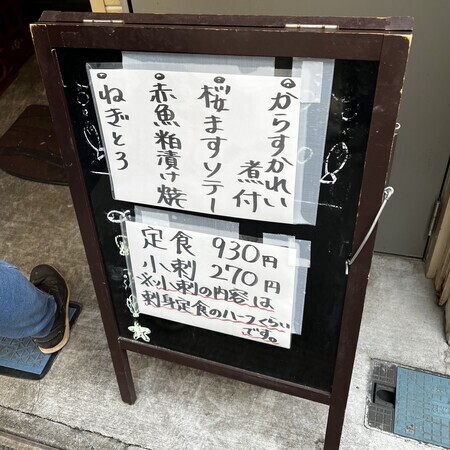 からすかれい
煮付
桜ますソテー
赤魚粕漬け焼
ねぎとろ
定食 930円
小刺 270円
※小刺の内容は
刺身定食のハーフくらい
です。